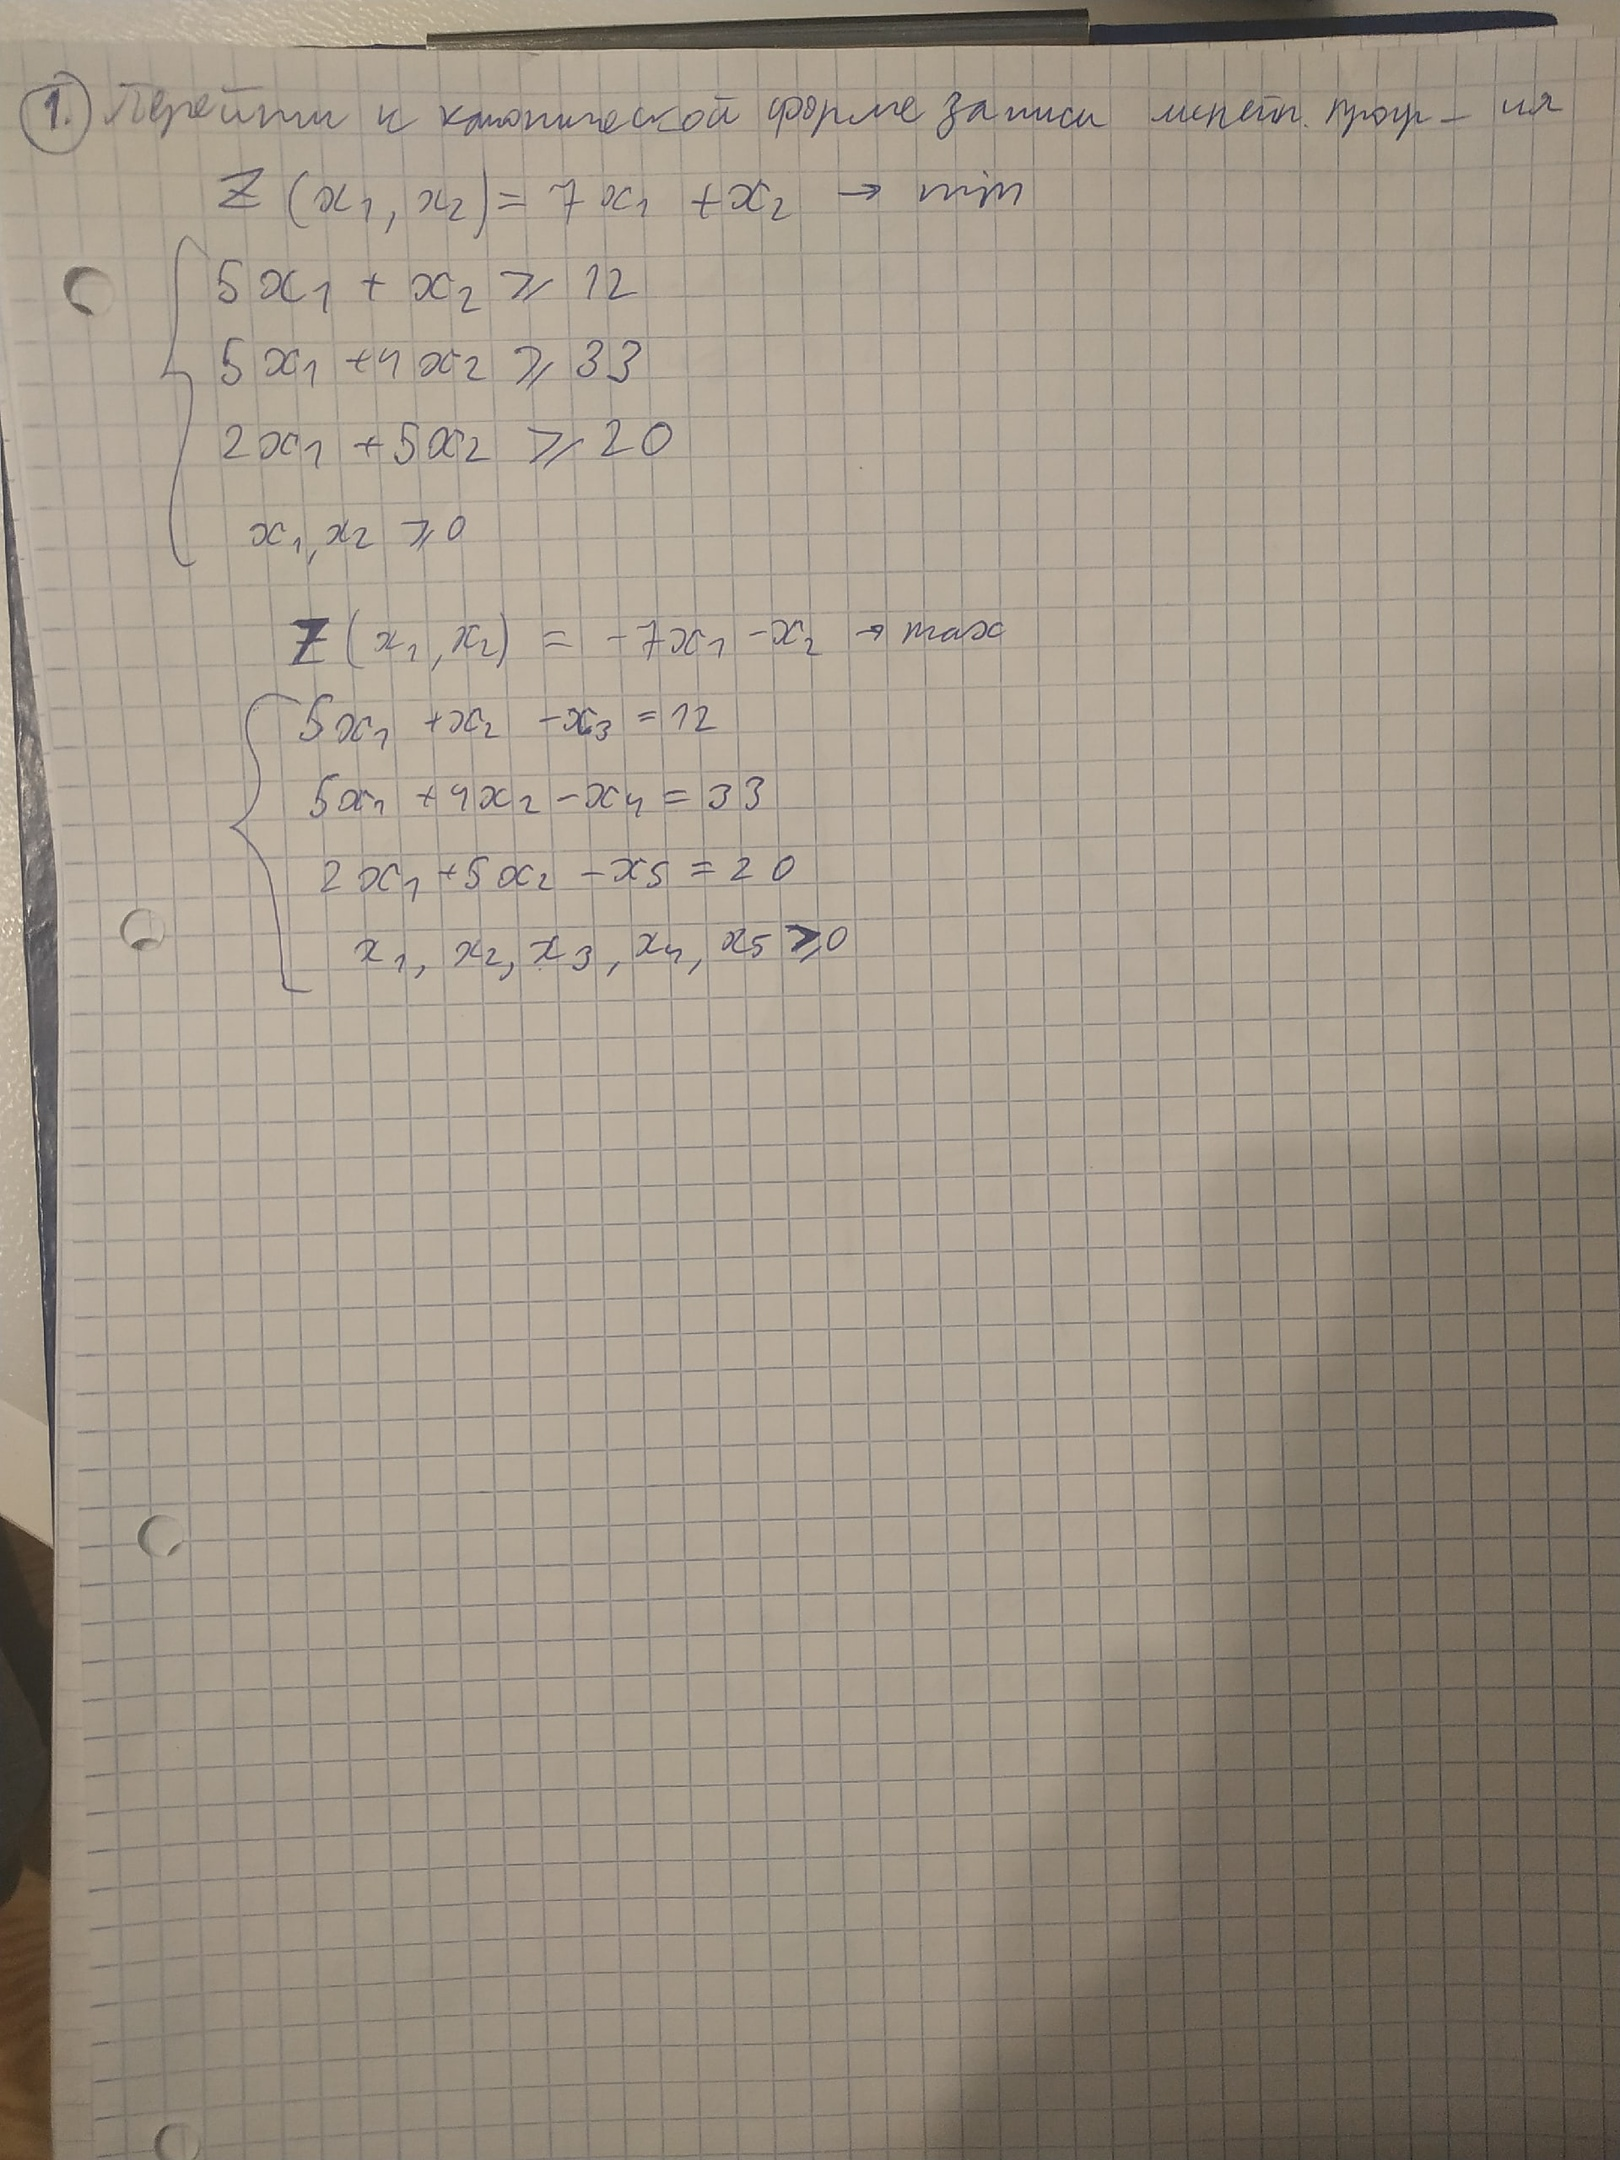 1. Перейти к канонической форме записи линейн. прогр-ия
Z(x₁, x₂) = 7x₁ + x₂ → min
5x₁ + x₂ ⩾ 12
5x₁ + 4x₂ ⩾ 33
2x₁ + 5x₂ ⩾ 20
x₁, x₂ ⩾ 0
Z(x₁, x₂) = -7x₁ - x₂ → max
5x₁ + x₂ - x₃ = 12
5x₁ + 4x₂ - x₄ = 33
2x₁ + 5x₂ - x₅ = 20
x₁, x₂, x₃, x₄, x₅ ⩾ 0